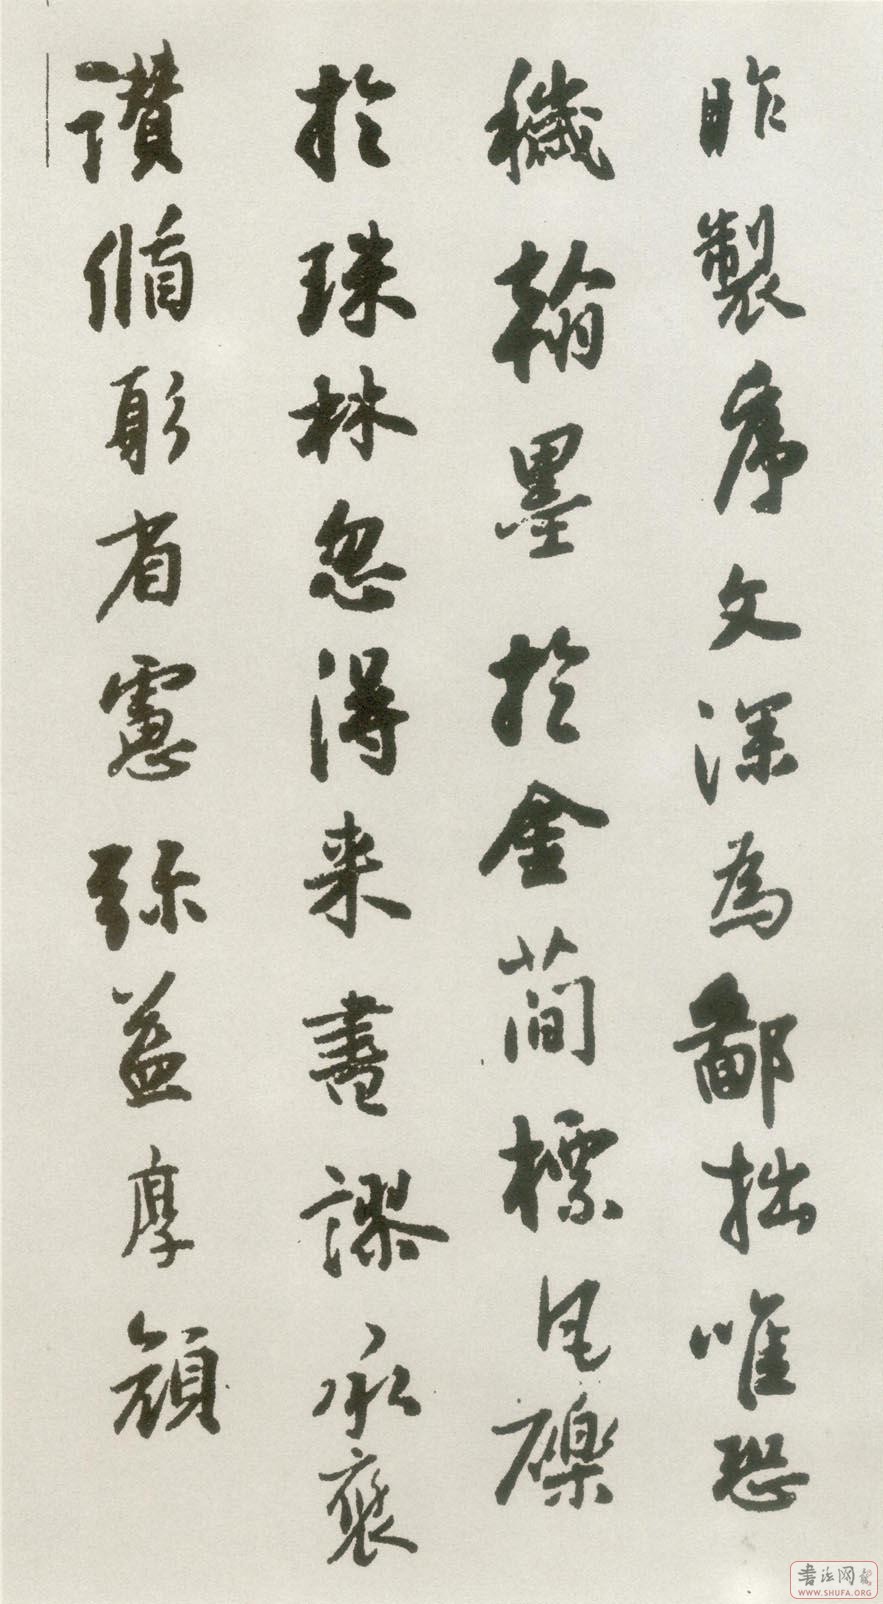 昨製序文深為鄙拙唯恐
穢翰墨於金簡標瓦礫
於珠林忽得来書謬承褒
讚循躬省慮弥益厚顔
書法网
WWW.SHUFA.ORG